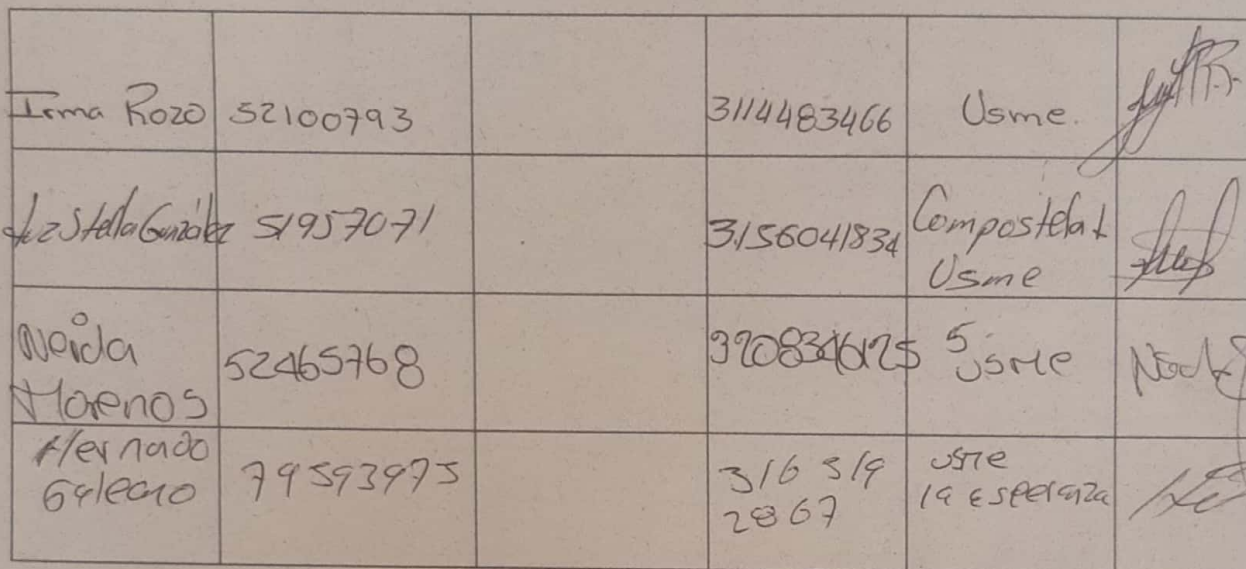 Irma Rozo 52100793 3114483466 Usme.
Luz Stella González 51957071 3156041834 Compostela 1
Usme
Neida 52465768 3208346125 5 Usme
Morenos
Hernado 79593975 316 519 usme
Galeano 2867 la Esperanza